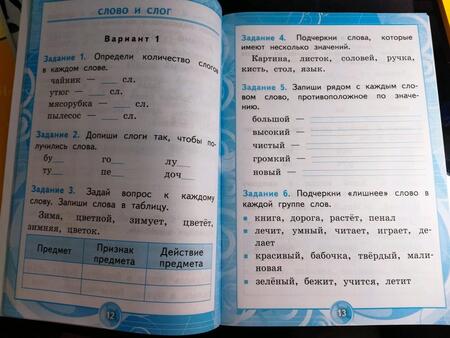 СЛОВО И СЛОГ
Вариант 1
Задание 1. Определи количество слогов
в каждом слове.
чайник — ___ сл.
утюг — ___ сл.
мясорубка — ___ сл.
пылесос — ___ сл.
Задание 2. Допиши слоги так, чтобы по-
лучились слова.
бу___ го___ лу___
ту___ пе___ доч___
Задание 3. Задай вопрос к каждому
слову. Запиши слова в таблицу.
Зима, цветной, зимует, цветёт,
зимняя, цветок.
Предмет Признак предмета Действие предмета
12
Задание 4. Подчеркни слова, которые
имеют несколько значений.
Картина, листок, соловей, ручка,
кисть, стол, язык.
Задание 5. Запиши рядом с каждым сло-
вом слово, противоположное по значе-
нию.
большой —
высокий —
чистый —
громкий —
новый —
Задание 6. Подчеркни «лишнее» слово в
каждой группе слов.
• книга, дорога, растёт, пенал
• лечит, умный, читает, играет, де-
лает
• красивый, бабочка, твёрдый, мали-
новая
• зелёный, бежит, учится, летит
13